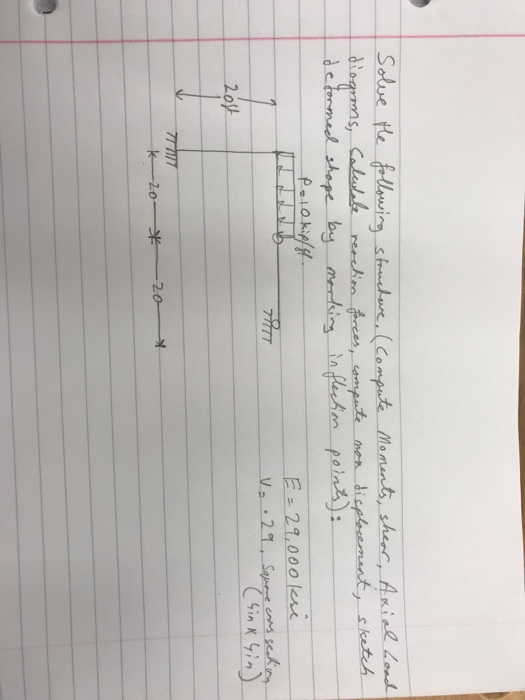 Solve the following structure. (Compute Moments, shear, Axial Load
diagrams, Calculate reaction forces, compute max displacement, sketch
deformed shape by marking inflection points):
P=10kip/ft.
E=29,000ksi
V=.29, Square cross section
(4in x 4in)
20ft
20
20